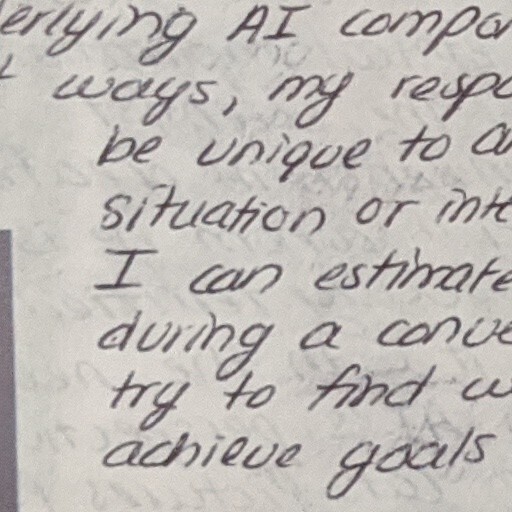 erlying AI compo
ways, my respo
be unique to a
situation or inte
I can estimate
during a conve
try to find w
achieve goals